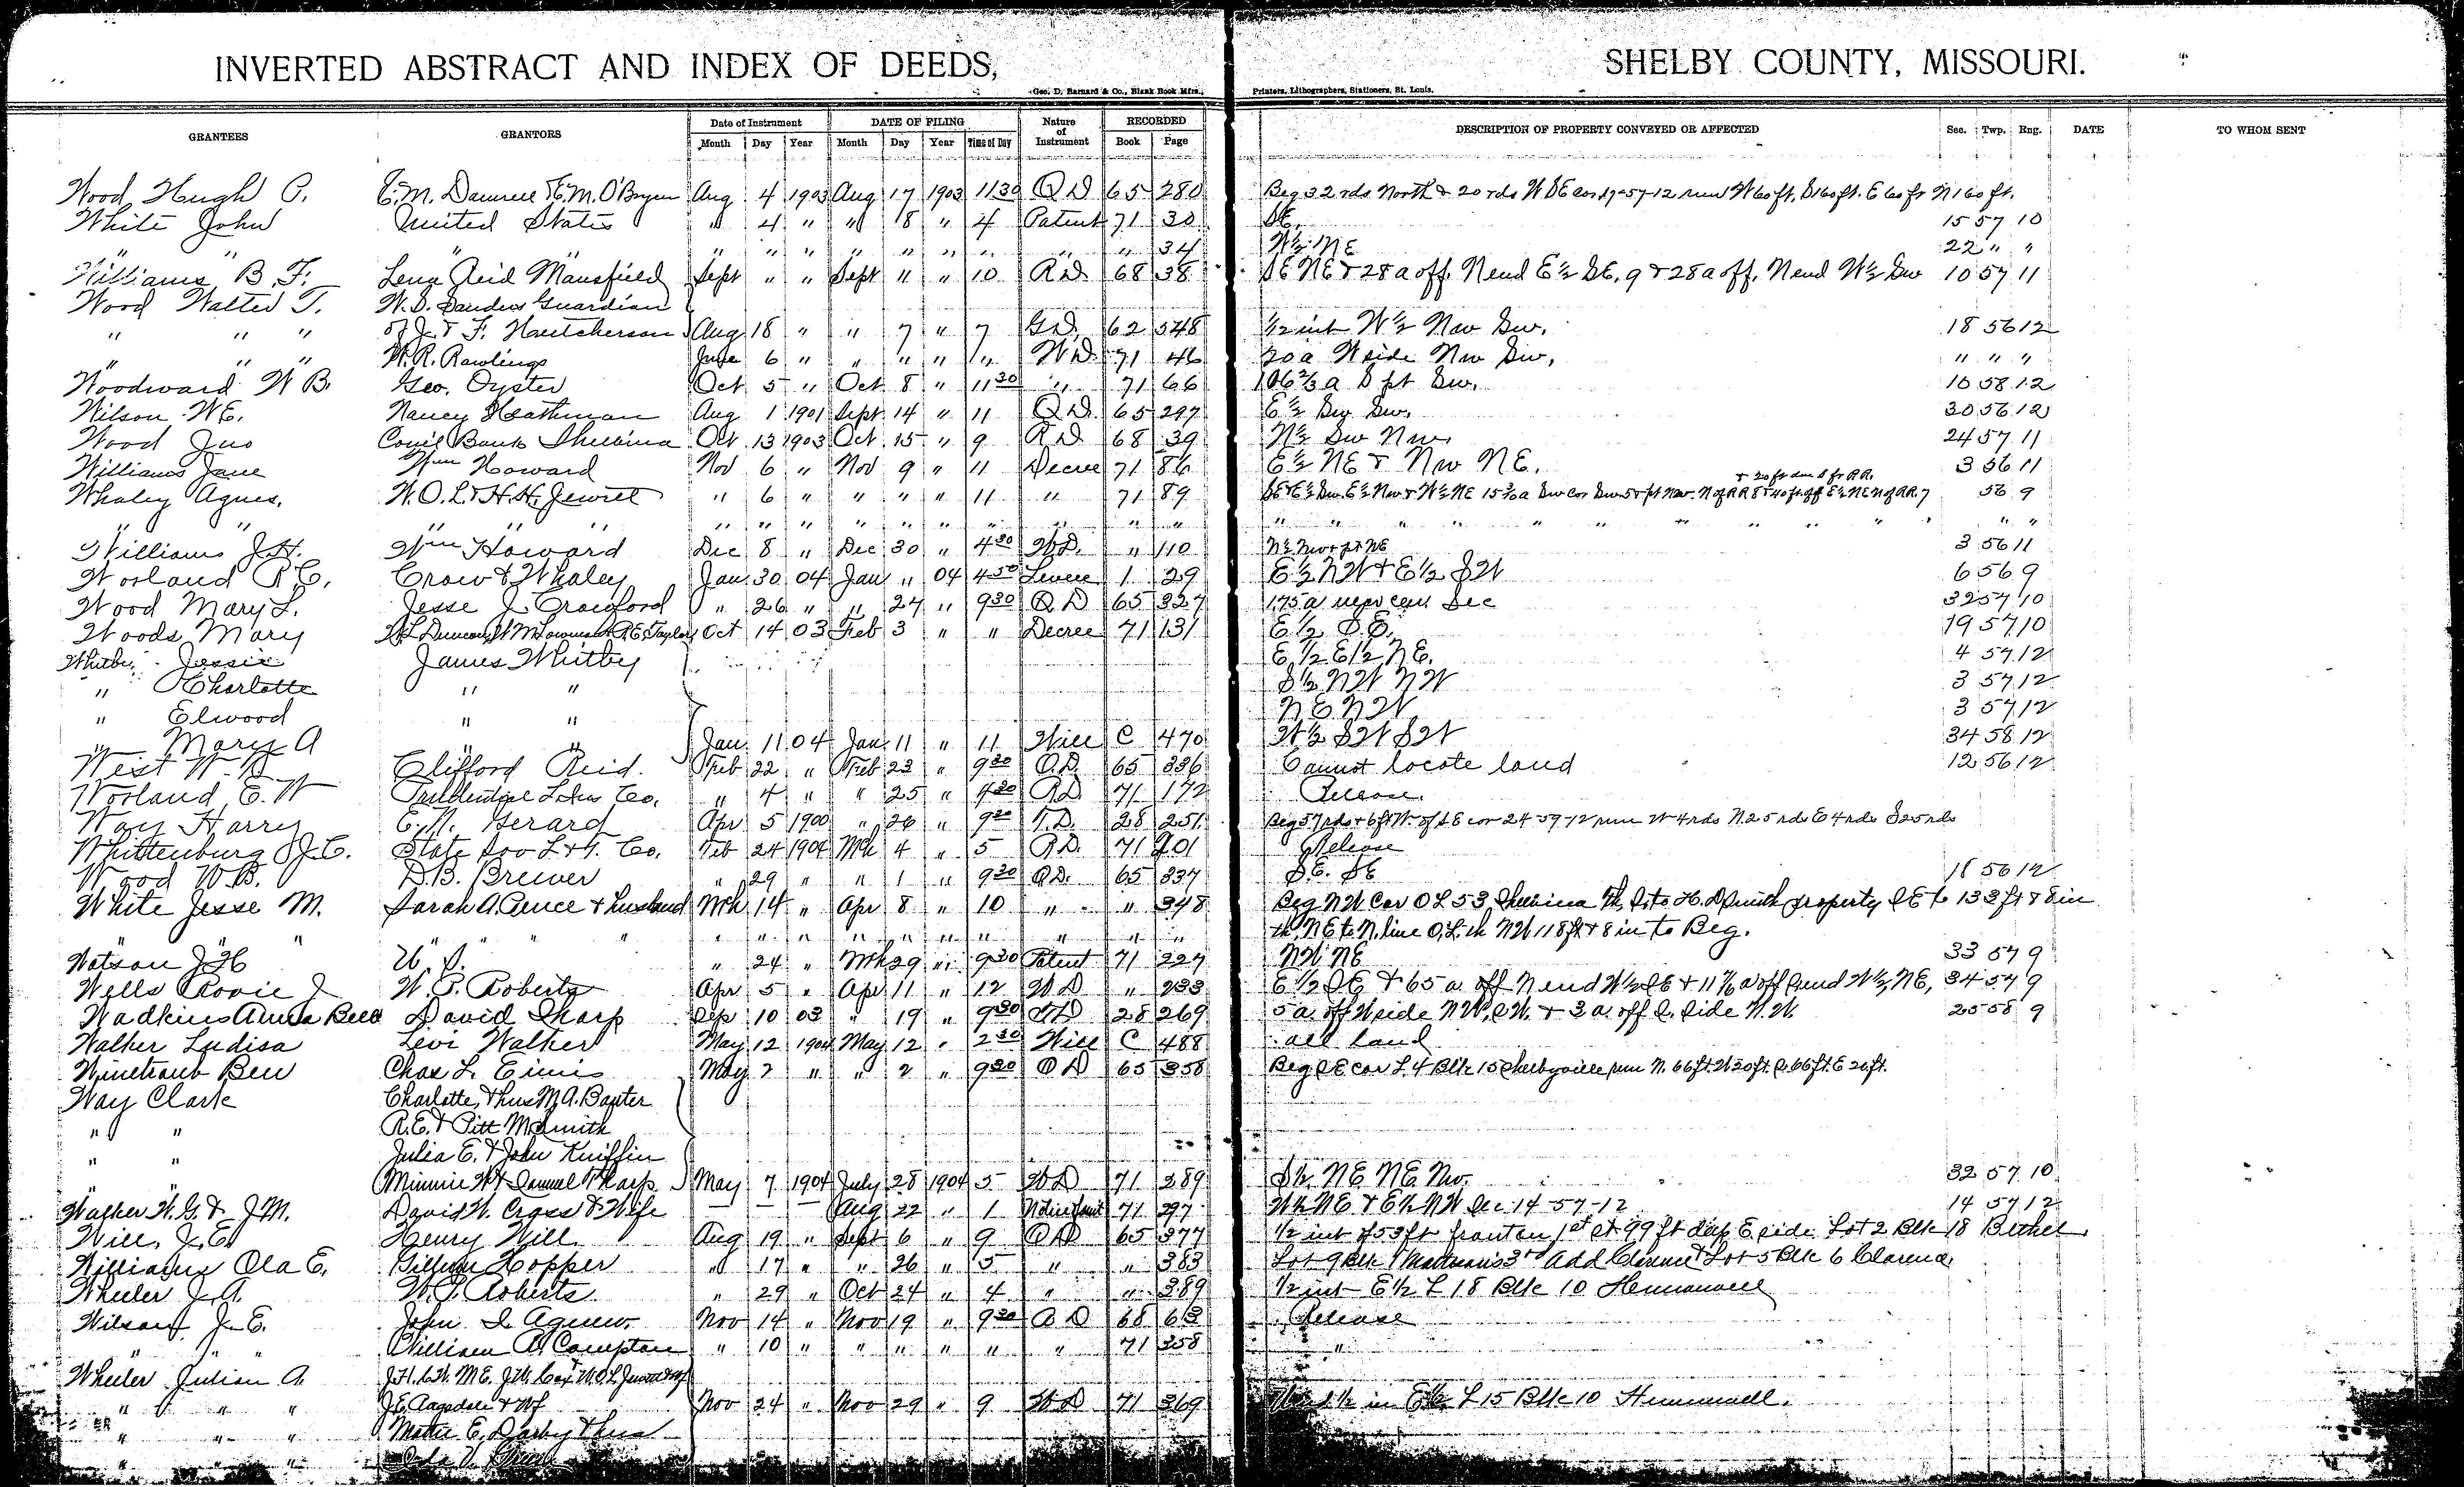 INVERTED ABSTRACT AND INDEX OF DEEDS, SHELBY COUNTY, MISSOURI.
Geo. D. Barnard & Co., Blank Book Mfrs., Printers, Lithographers, Stationers, St. Louis.
GRANTEES GRANTORS Date of Instrument DATE OF FILING Nature of Instrument RECORDED DESCRIPTION OF PROPERTY CONVEYED OR AFFECTED Sec. Twp. Rng. DATE TO WHOM SENT
Month Day Year Month Day Year Time of Day Book Page
Wood Hugh C. E.M. O'Bryen Aug 4 1903 Aug 17 1903 11 30 Q D 65 280 Beg 32 rds North & 20 rds W SE cor 17-57-12 run W 60 ft. S 160 ft. E 60 ft N 160 ft.
White John United States " 4 " " 18 " 4 Patent 71 30 SE. 15 57 10
" " " " " " " " " " " " 34 N½ NE 22 " "
Williams B. F. Lena Reid Mansfield Sept " " Sept 11 " 10 R D 68 38 SE NE & 28 a off N end E½ SE. 9 & 28 a off. N end W½ Sw 10 57 11
Wood Walter T. W.D. Sanders Guardian
" " " of J. & F. Hutcherson Aug 18 " " 7 " 7 G D. 62 548 ½ int W½ Nw Sw. 18 56 12
" " " W. R. Rawlings June 6 " " " " " W D 71 46 20 a W side Nw Sw, " " "
Woodward W B. Geo. Oyster Oct 5 " Oct 8 " 11 30 " 71 66 106⅔ a S pt Sw. 10 58 12
Wilson W E. Nancy Heathman Aug 1 1901 Sept 14 " 11 Q D. 65 297 E½ Sw Sw. 30 56 12
Wood Jno Coml Bank Shelbina Oct 13 1903 Oct. 15 " 9 R D 68 39 N½ Sw Nw. 24 57 11
Williams Jane Wm Howard Nov 6 " Nov 9 " 11 Decree 71 86 E½ NE & Nw NE. 3 56 11
Whaley Agnes. W. O. L. & H. H. Jewett " 6 " " " " 11 " 71 89 56 9
" " " " " " " " " " " " " " " " "
Williams J. H. Wm Howard Dec 8 " Dec 30 " 4 30 W D. " 110 N½ Nw & pt NE 3 56 11
Worland R E. Crow & Whaley Jan. 30 04 Jan. " 04 4 50 1 29 E½ NW & E½ SW 6 56 9
Wood Mary L. Jesse J. Crawford " 26 " " 27 " 9 30 Q D 65 327 175 a near cen. Sec 32 57 10
Woods Mary Oct 14 03 Feb 3 " " Decree 71 131 E½ S.E. 19 57 10
Whitby Jessie James Whitby E½ E½ NE. 4 57 12
" Charlotte " " S½ NW NW 3 57 12
" Elwood " " N E. N W. 3 57 12
" Mary A " " Jan. 11 04 Jan. 11 " 11 Will C 470 W½ SW SW 34 58 12
West W. B. Clifford Reid. Feb 22 " Feb 23 " 9 30 Q.D. 65 336 Cannot locate land 12 56 12
Worland E. W Prudential L Ins Co. " 4 " " 25 " 4 30 R D 71 172 Release.
Way Harry E. N. Gerard Apr 5 1900 " 26 " 9 T.D. 28 251 Beg 57 rds & 6 ft W. of SE cor 24-59-12 run W 4 rds N. 25 rds E 4 rds S 25 rds
Whittenburg J. C. State Sav L & T. Co. Feb 24 1904 Mch 4 " 5 R D. 71 201 Release
Wood W B. D. B. Brewer " 29 " " 1 " 9 30 Q D. 65 337 S.E. SE 18 56 12
White Jesse M. Sarah A. & husband Mch 14 " Apr 8 " 10 " " 348 Beg NW Cor O L 53 Shelbina Th. S. to H. Smith property SE to 133 ft & 8 in
" " " " " " " " " " " " " th. NE to N. line O.L. th NW 118 ft & 8 in to Beg.
Watson J H U. S. " 24 " Mch 29 " 9 30 Patent 71 227 NW NE 33 57 9
Wells Roxie J W. P. Roberts Apr 5 " Apr 11 " 12 W D " 233 E½ SE & 65 a off N end W½ SE & 11 a off S end W½ NE, 34 57 9
Wadkins Amda Bell David Sharp Sep 10 03 " 19 " 9 30 28 269 5 a. off W side NW. SW. & 3 a. off S. side N.W. 25 58 9
Walker Ludisa Levi Walker May 12 1904 May 12 " 2 30 Will C 488 all land
Winetraub Ben Chas L. Ennis May 2 " " 2 " 9 30 Q D 65 358 Beg SE cor L. 4 Blk 15 Shelbyville run N. 66 ft. W 20 ft. S. 66 ft. E 20 ft.
Way Clark Charlotte & hus M. A. Baxter
" " R. E. & Pitt M Smith
" " Julia E. & John Kniffin
Minnie W & Samuel Tharp May 7 1904 July 28 1904 5 W D 71 289 S½ NE NE Nw. 32 57 10
Walker W. G. & J. M. David W. Cross & Wife Aug 22 " 1 71 297 W½ NE & E½ NW Sec. 14-57-12 14 57 12
Will, J. E. Henry Will Aug 19 " Sept 6 " 9 Q D 65 377 ½ int of 53 ft front on 1st st 99 ft deep E side Lot 2 Blk 18 Bethel
Williams Ola E. Hopper " 17 " " 26 " 5 " " 383 Lot 9 Blk 1 3rd Add Clarence & Lot 5 Blk 6 Clarence
Wheeler J. A. W. P. Roberts " 29 " Oct 24 " 4 " " 389 ½ int E½ L 18 Blk 10 Hunnewell
Wilson J. E. John S. Agnew. Nov 14 " Nov 19 " 9 30 R D 68 63 Release
" " " William A. Compton " 10 " " " " " " 71 358 "
Wheeler Julian A.
" " " J E. Ragsdale & Wf Nov 24 " Nov 29 " 9 W D 71 369 in E½ L 15 Blk 10 Hunnewell.
" " " Mattie E. Darby & hus
" " "